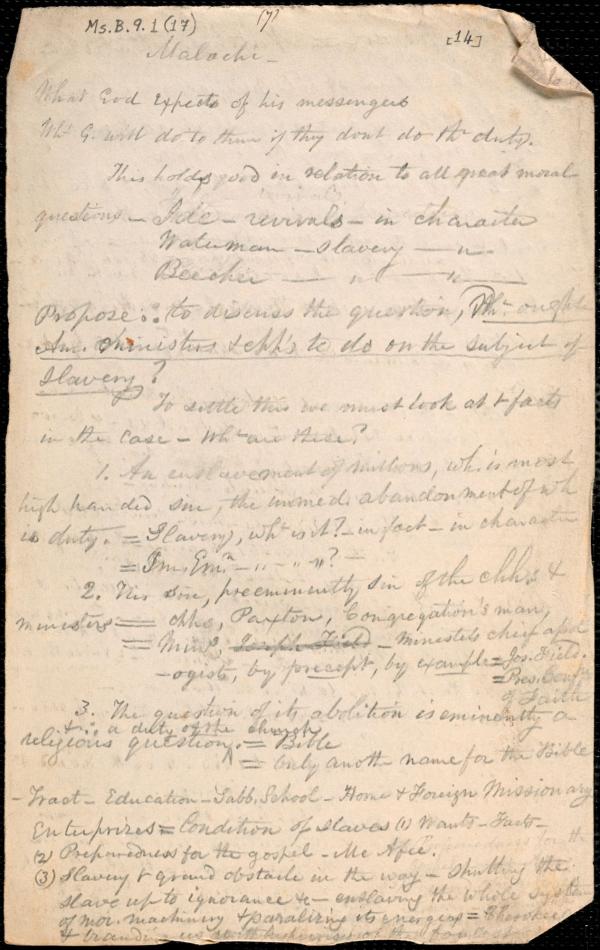 Ms.B.9.1(17)
(7)
[14]
Malachi -
What God expects of his messengers
Wht G. will do to them if they dont do thr duty.
This holds good in relation to all great moral
questions - Ide - revivals - in character
Waterman - slavery - "
Beecher - " "
Propose ∴ to discuss the question, Wht ought
Am. Ministers & chh's to do on the subject of
Slavery?
To settle this we must look at t facts
in the case - Wht are these?
1. An enslavement of millions, wh. is most
high handed sin, the immed. abandonment of wh
is duty. = Slavery, wht is it? - in fact - in character
= Im. Emn - " - " - "? -
2. This sin, preeminently sin of the chhs &
ministers = chhs, Paxton, Congregation's man,
= Mins, Joseph Field - Ministers chief apol
-ogists, by precept, by example = Jos. Field.
= Pres. Conf.
of Faith
3. The question of its abolition is eminently a
& ∴ a duty of the church
religious question, = Bible
= only anothr name for the Bible
- Tract - Education - Sabb. School - Home & Foreign Missionary
Enterprizes = Condition of slaves (1) Wants - Facts -
(2) Preparedness for the gospel - Mc Afee.
(3) Slavery t grand obstacle in the way - shutting the
slave up to ignorance &c - enslaving the whole system
of mor. machinery & paralizing its energies = Cherokees